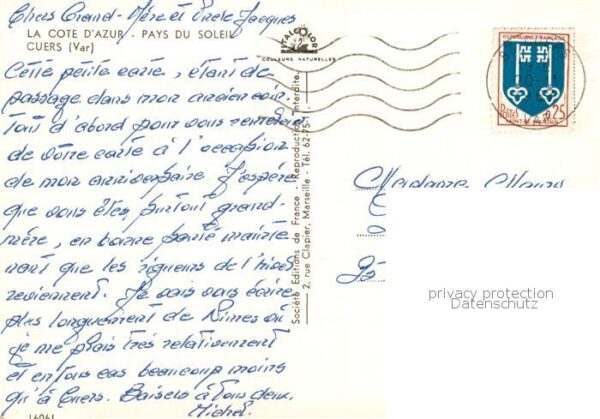 Chers Grand-Mère et Oncle Jacques
LA COTE D'AZUR - PAYS DU SOLEIL
CUERS (Var)
Cette petite carte, étant de
passage dans mon ancien coin.
Tout d'abord pour vous remercier
de votre carte à l'occasion
de mon anniversaire J'espère
que vous êtes, surtout grand-
mère, en bonne santé mainte-
nant que les rigueurs de l'hiver
reviennent. Je vais vous écrire
plus longuement de Nîmes où
je me plais très relativement
et en tous cas beaucoup moins
qu'à Cuers. Baisers à tous deux.
Michel.
ITALCOLOR
COULEURS NATURELLES
Société Editions de France - Reproduction interdite.
2, rue Clapier, Marseille - Tél. 62-75
REPUBLIQUE FRANÇAISE
Postes 0,25
MONT-DE-MARSAN
Madame
privacy protection
Datenschutz